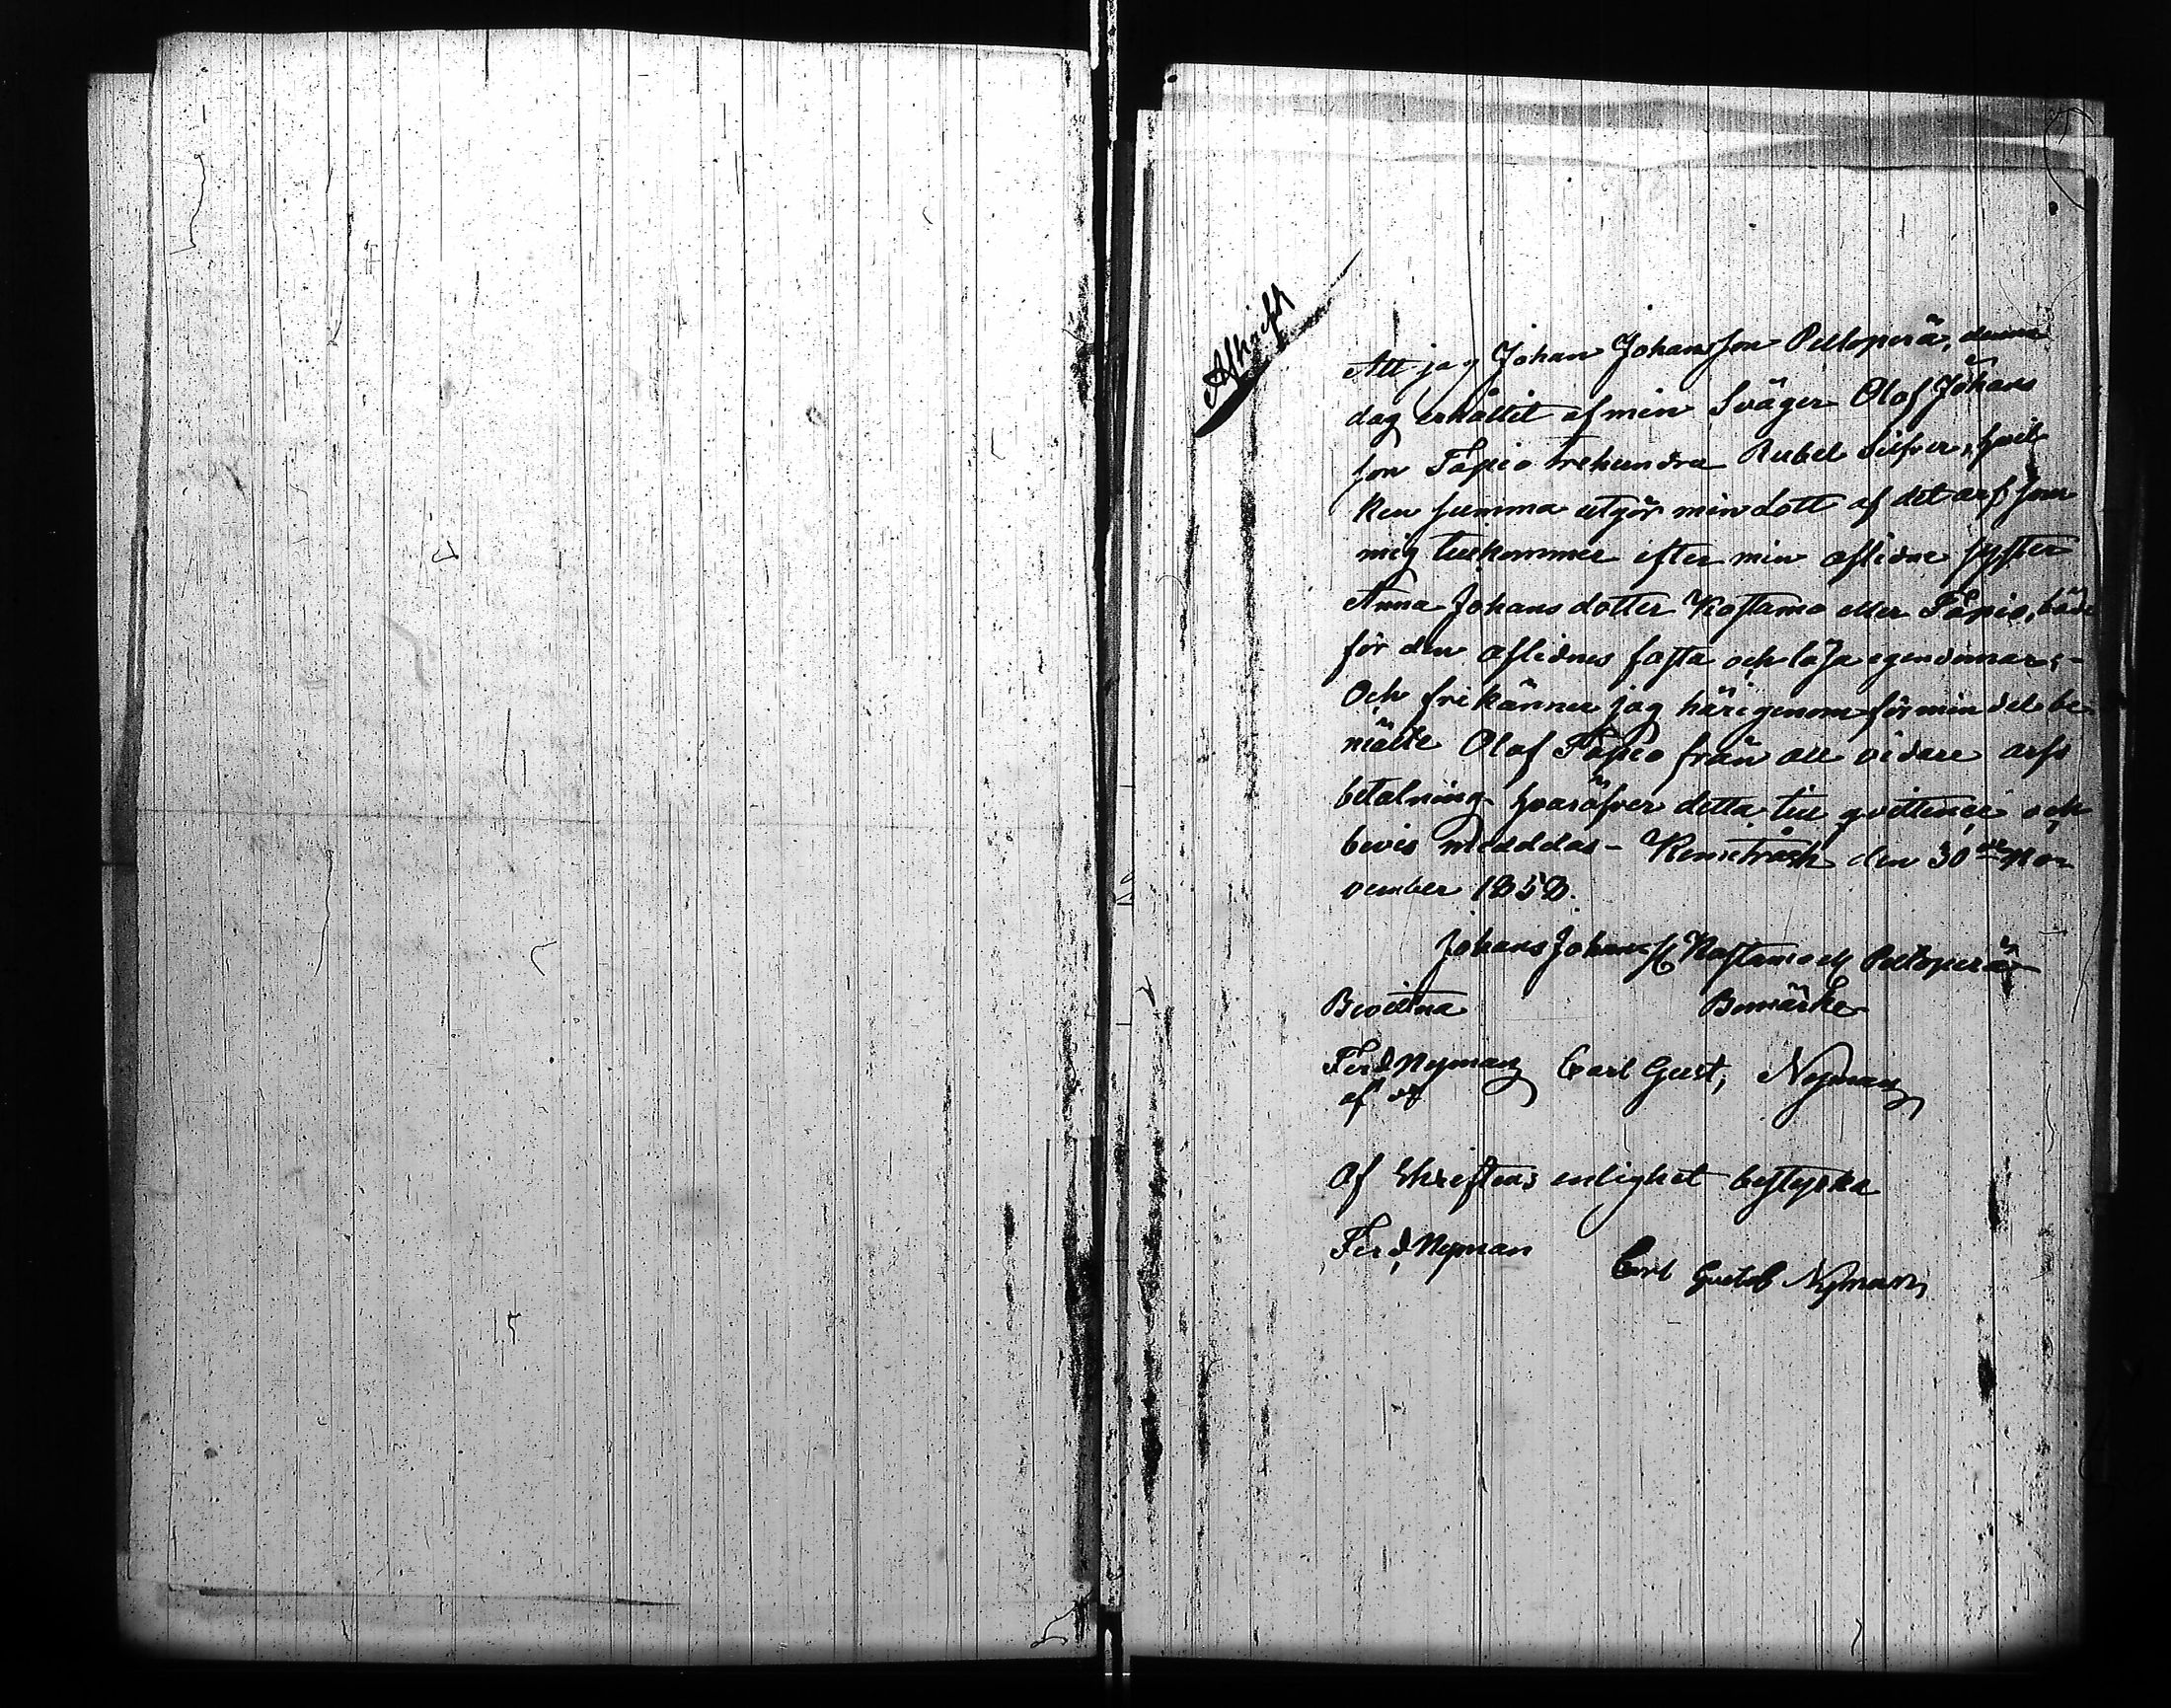 Afskrift
Att jag Johan Johansson Peltoperä, denna
dag erhållit af min Svåger Olof Johans
son Tapio trehundra Rubel Silfver, hvil
ken summa utgör min lott af det arf som
mig tillkommer efter min aflidne syster
Anna Johansdotter Kostamo eller Tapio, både
för den aflidnes fasta och lösa egendomar,-
Och frikänner jag härigenom för min del be
mälte Olof Tapio från all vidare arfs
betalning hvaröfver detta till qvittence och
bevis meddelas - Kemiträsk den 30 de No
vember 1858.
Johans Johanss Kostamo ell Peltoperä
Bevittna Bomärke
Ferd Nyman Carl Gust, Nyman
af
Af Skriftens enlighet bestyrka
Ferd Nyman
Carl Gustaf Nyman